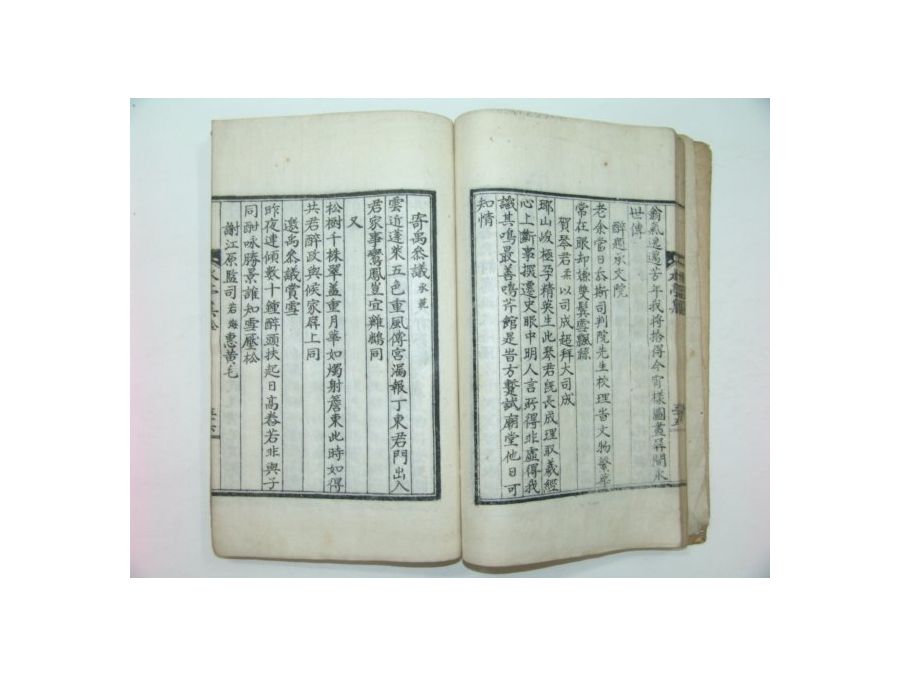 翁氣邁適苦年我將拾得今宵樣圖畫屛間永
世傳
醉題承文院
老余當日忝斯司判院先生校理皆文物繁華
常在眼却嫌雙鬢雪飄
賀琴君柔以司成超拜大司成
瑯山峻極孕精英生此琴君旣長成理取羲經
心上斷事撰遷史眼中明人言所得非虛得我
識其鳴最善鳴芹館是皆方蹔試廟堂他日可
知情
寄禹叅議
雲近蓬萊五色重風傳宮漏報丁東君門出入
君家事鸞鳳豈宜雞鶴同
又
松樹千株翠盖重月華如燭射簷東此時如得
共君醉政與候家屛上同
邀禹叅議賞雪
昨夜連傾數十鍾醉頭扶起日高舂若非與子
同酣咏勝景誰知雪壓松
謝江原監司若海惠黃毛